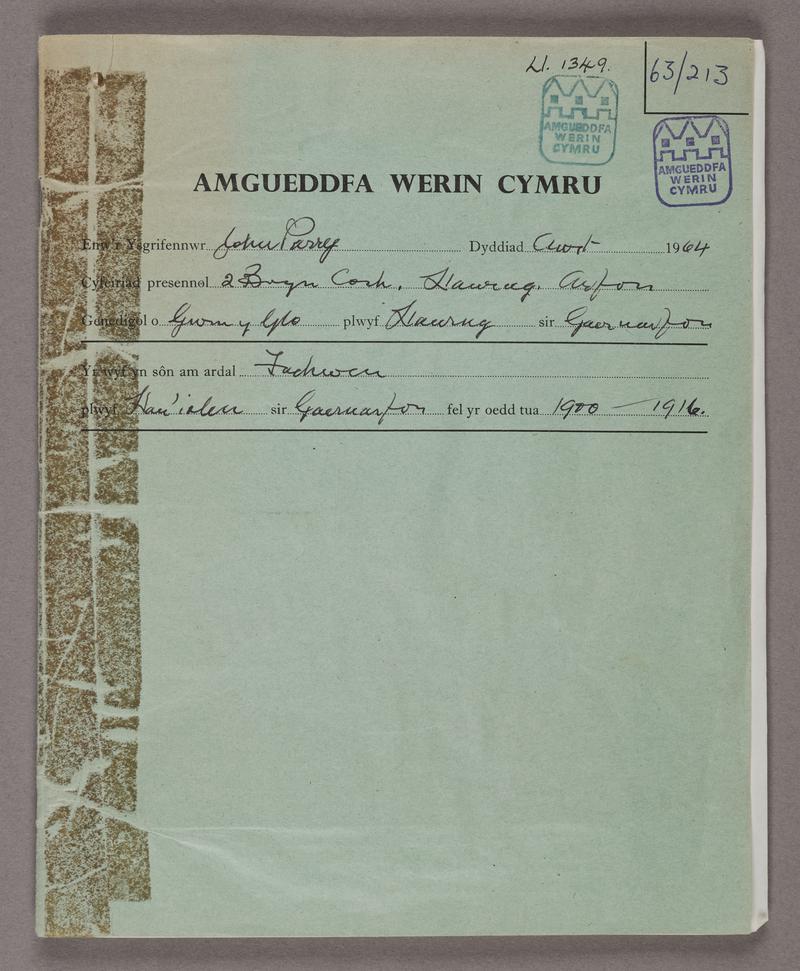 Ll. 1349.
63/213
AMGUEDDFA
WERIN
CYMRU
AMGUEDDFA
WERIN
CYMRU
AMGUEDDFA WERIN CYMRU
Enw'r Ysgrifennwr John Parry Dyddiad Awst 1964
Cyfeiriad presennol 2 Bryn Coch, Llanrug, Arfon
Genedigol o Gwm y Glo plwyf Llanrug sir Gaernarfon
Yr wyf yn sôn am ardal Fachwen
plwyf Llan'iolen sir Gaernarfon fel yr oedd tua 1900 — 1916.